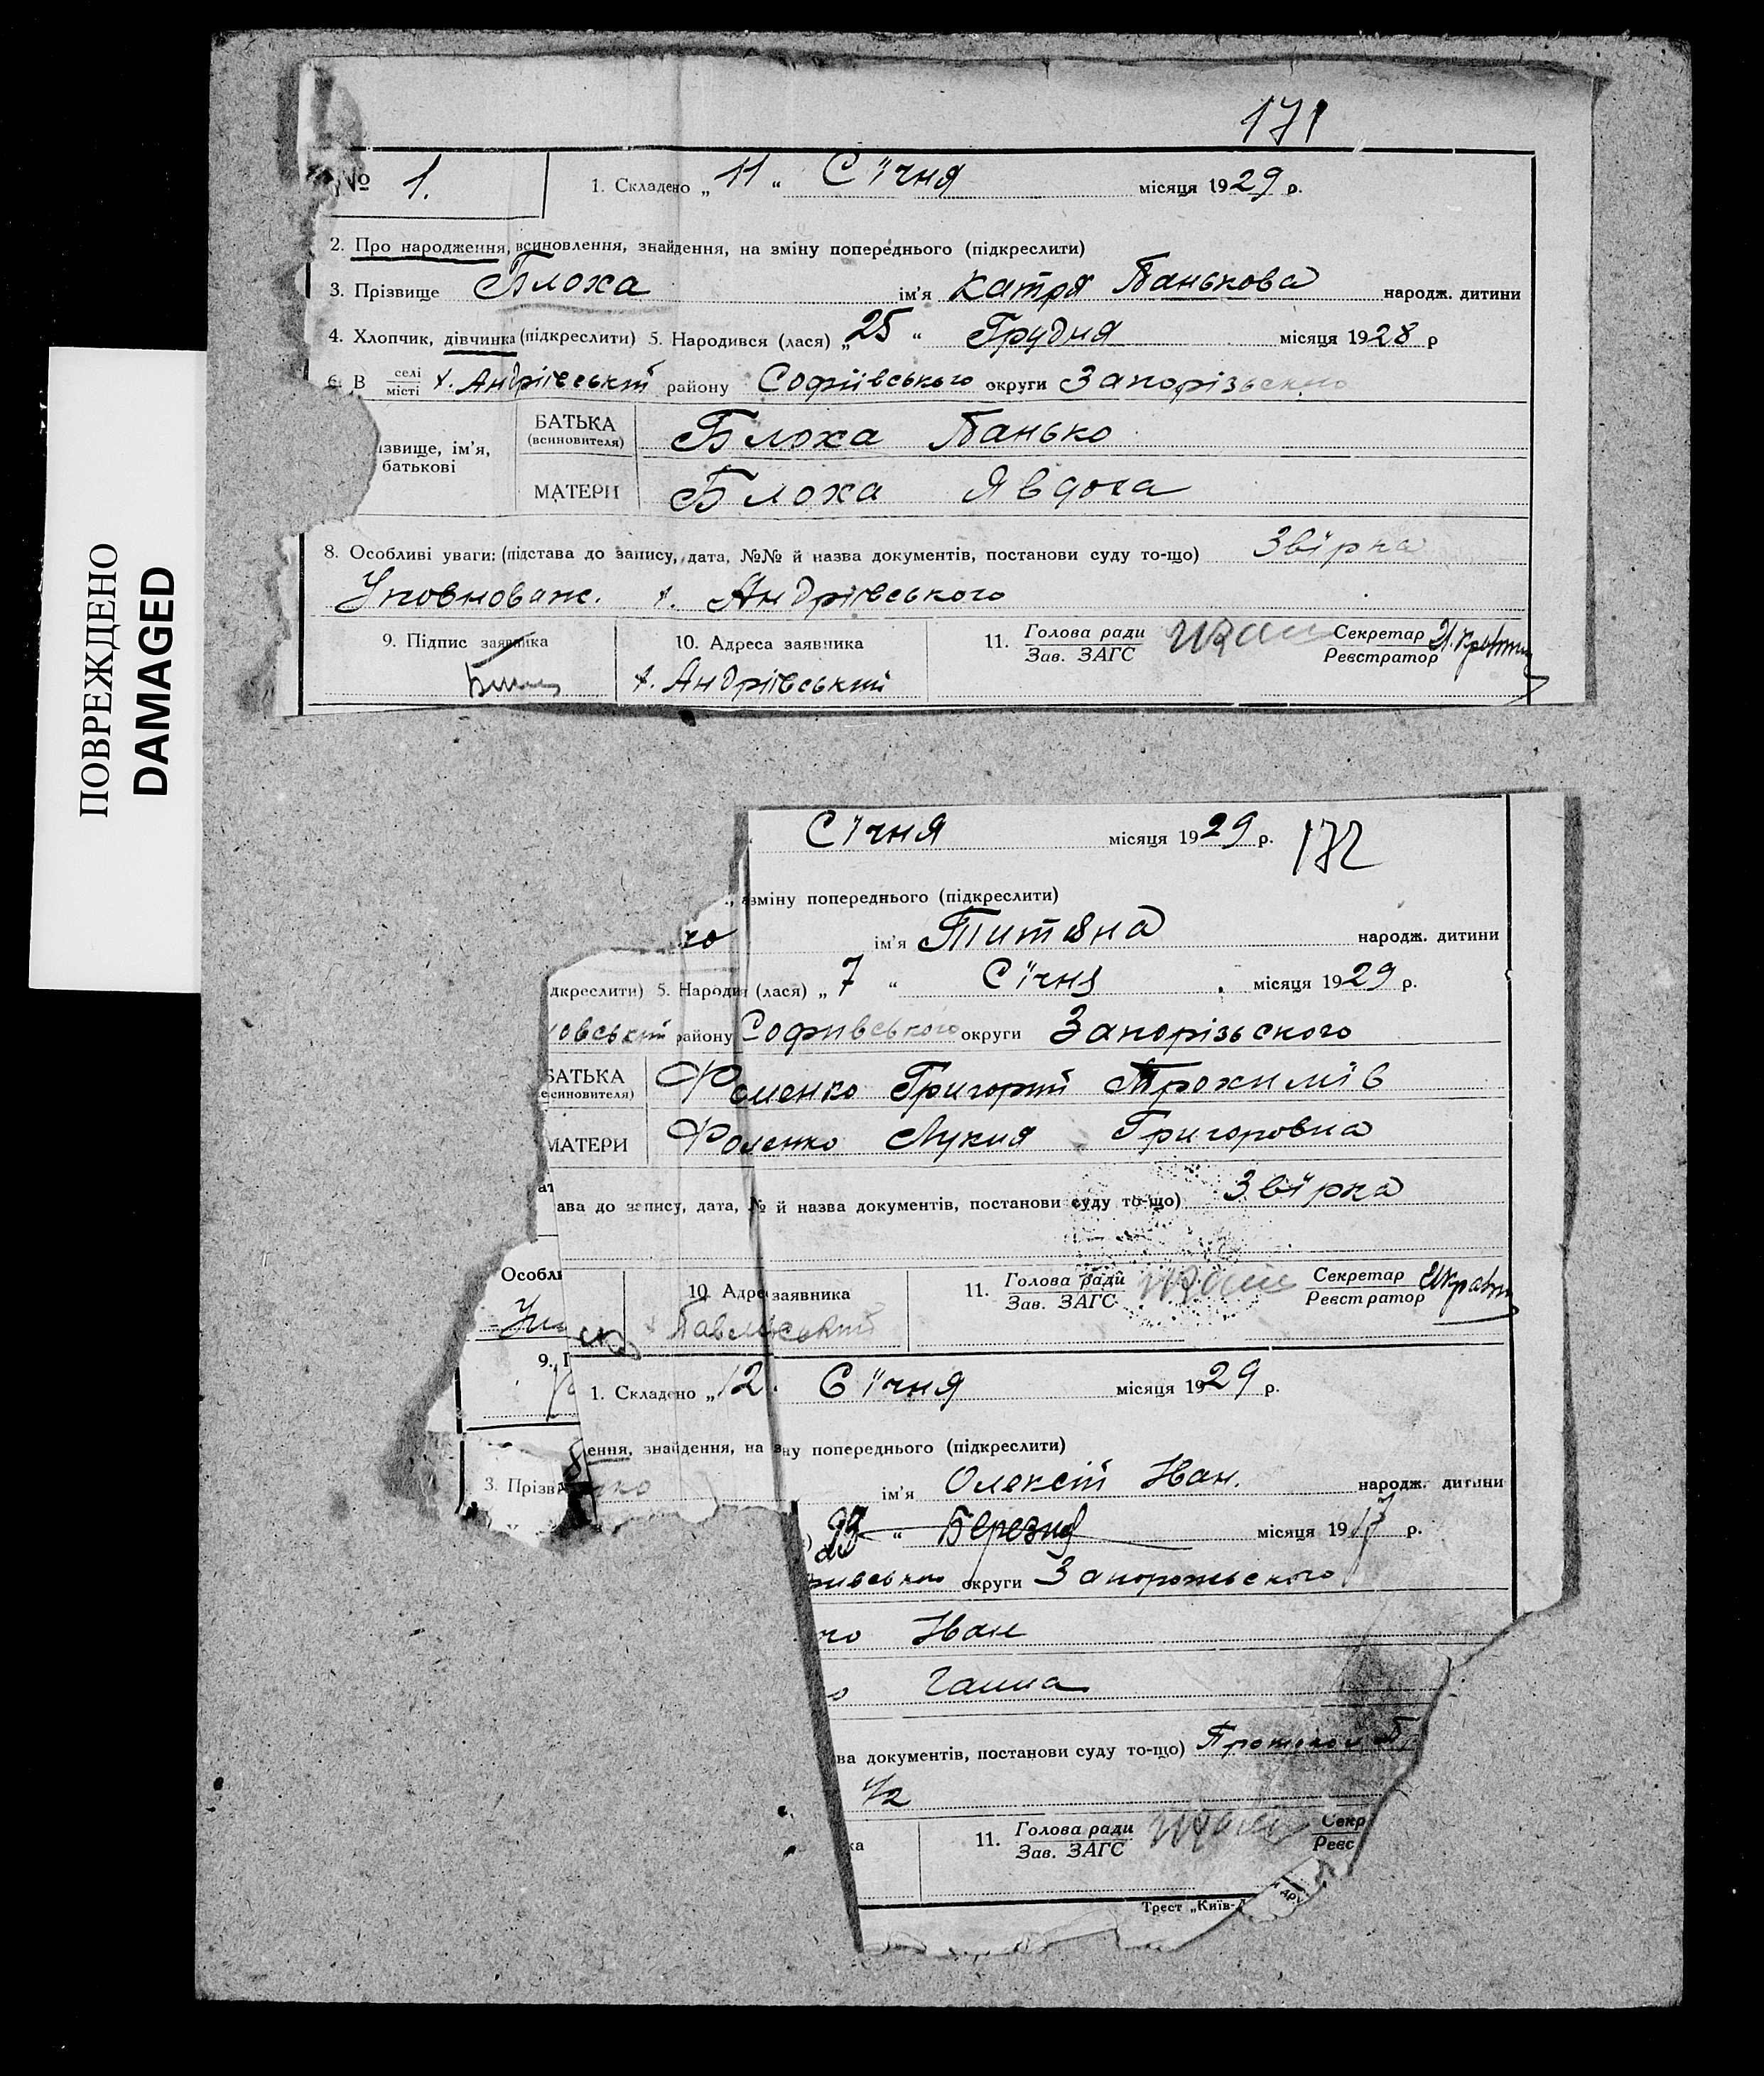 ПОВРЕЖДЕНО
DAMAGED
171
№ 1. 1. Складено „11“ Січня місяця 1929 р.
2. Про народження, всиновлення, знайдення, на зміну попереднього (підкреслити)
3. Прізвище Блоха ім'я Катря Панькова народж. дитини
4. Хлопчик, дівчинка (підкреслити) 5. Народився (лася) „25“ Грудня місяця 1928 р
6. В селі місті х. Андріївський району Софіївського округи Запорізького
ізвище, ім'я, батькові
БАТЬКА (всиновителя) Блоха Панько
МАТЕРИ Блоха Явдоха
8. Особливі уваги: (підстава до запису, дата, №№ й назва документів, постанови суду то-що) Звірка
Уповноваж. х. Андріївського
9. Підпис заявника 10. Адреса заявника 11. Голова ради Зав. ЗАГС Секретар Реєстратор
х. Андріївський
Січня місяця 1929 р. 172
зміну попереднього (підкреслити)
ко ім'я Титяна народж. дитини
дкреслити) 5. Народив (лася) „7“ Січня місяця 1929 р.
овський району Софиівського округи Запорізьского
БАТЬКА (всиновителя) Фоменко Григорий Трохимів
МАТЕРИ Фоменко Лукия Григоровна
ава до запису, дата, № й назва документів, постанови суду то-що) Звірка
Особли
10. Адре заявника 11. Голова ради Зав. ЗАГС Секретар Реєстратор
9. П
1. Складено „12. Січня місяця 1929 р.
ення, знайдення, на зну попереднього (підкреслити)
3. Прізв нко ім'я Олексій Иван. народж. дитини
23 “ Березня місяця 1917 р.
ивського округи Запорожьского
ко Иван
о Ганна
ва документів, постанови суду то-що) Протокол
1/2
ка 11. Голова ради Зав. ЗАГС Секр Реєс
Трест „Київ-Д